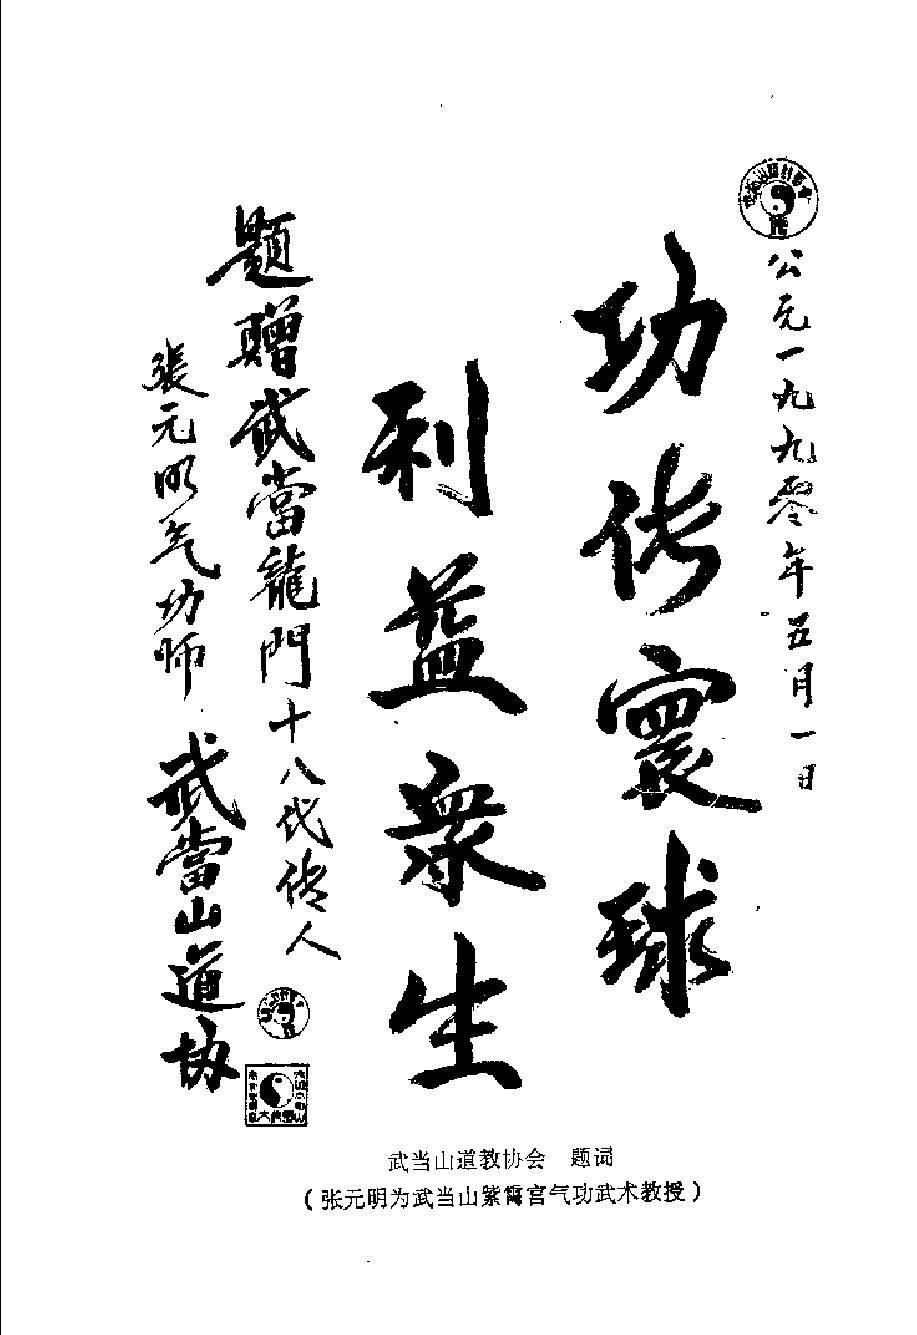 公元一九九零年五月一日
功传寰球
利益衆生
题赠武當龍門十八代传人
張元明气功师
武當山道协
武当山道教协会　题词
（张元明为武当山紫霄宫气功武术教授）